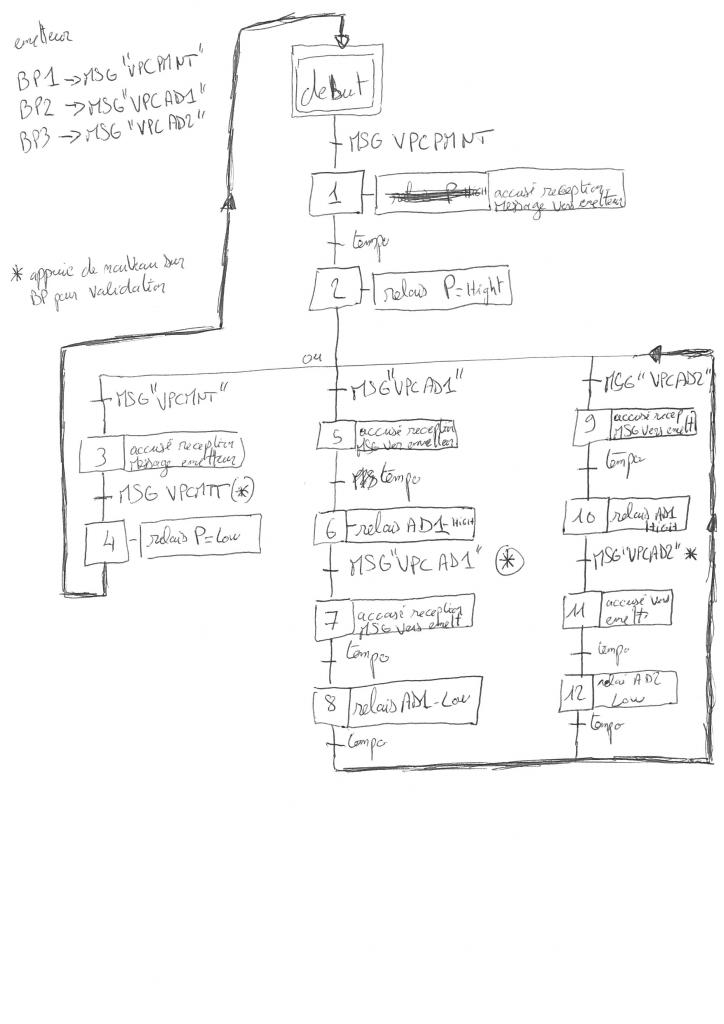 emetteur
BP1 -> MSG "VPCPMNT"
BP2 -> MSG "VPCAD1"
BP3 -> MSG "VPCAD2"
* appuie de nouveau sur
BP pour validation
debut
MSG VPCPMNT
1
relais P=HIGH
accusé reception
Message vers emetteur
tempo
2
relais P=Hight
ou
MSG "VPCMNT"
3
accusé reception
Message emetteur
MSG VPCMTT (*)
4
relais P=Low
MSG "VPCAD1"
5
accusé reception
MSG ver emetteur
tempo
6
relais AD1-HIGH
MSG "VPCAD1" *
7
accusé reception
MSG vers emett
tempo
8
relais AD1-Low
tempo
MSG "VPCAD2"
9
accusé recep
MSG vers emett
tempo
10
relais AD1
HIGH
MSG "VPCAD2" *
11
accusé vers
emett
tempo
12
relai AD2
Low
tempo